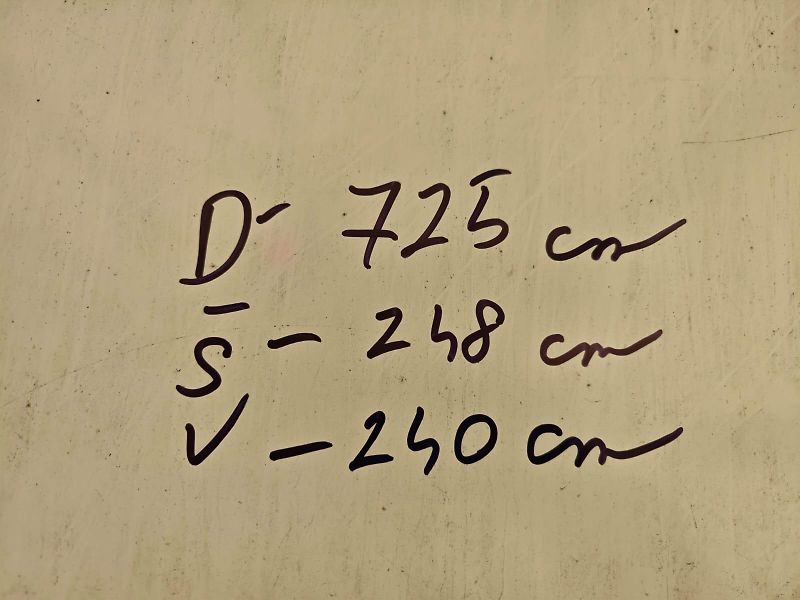 D - 725 cm
Š - 248 cm
V - 240 cm